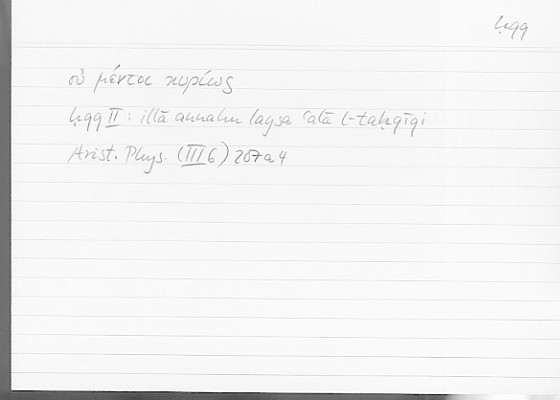 ḥqq
οὐ μέντοι κυρίως
ḥqq II: illā annahu laysa ʿalā l-taḥqīqi
Arist. Phys. (III 6) 207a4